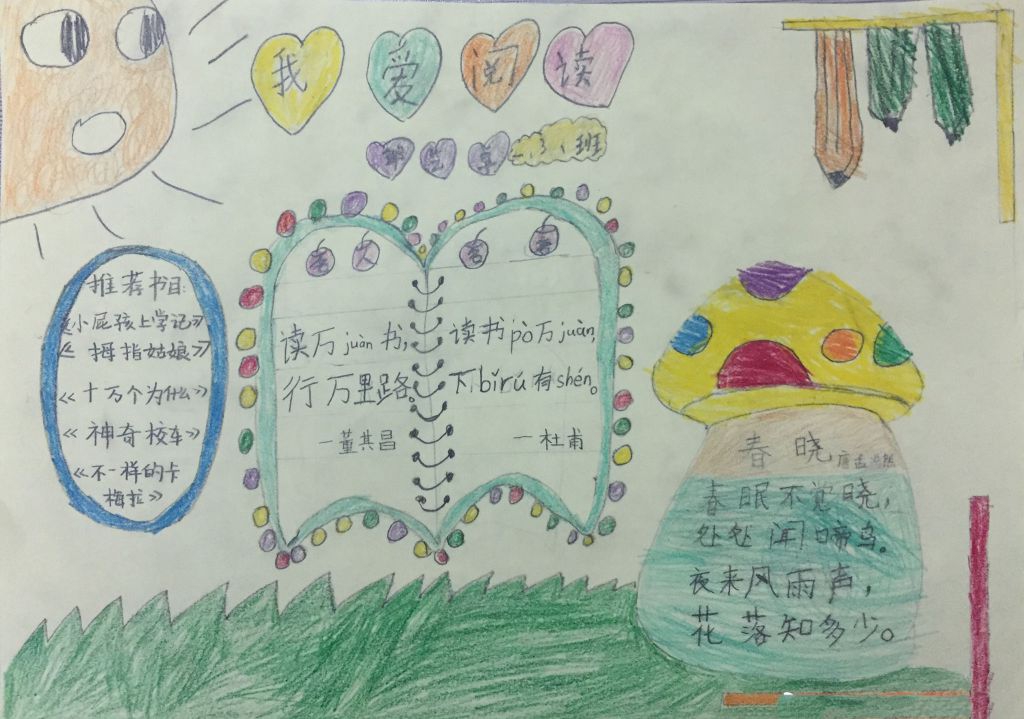 我爱阅读
班
名人名言
推荐书目:
《小屁孩上学记》
《拇指姑娘》
《十万个为什么》
《神奇校车》
《不一样的卡
梅拉》
读万juàn书,
行万里路。
—董其昌
读书pò万juàn,
下bǐrú有shén。
—杜甫
春晓 唐孟浩然
春眠不觉晓,
处处闻啼鸟。
夜来风雨声,
花落知多少。